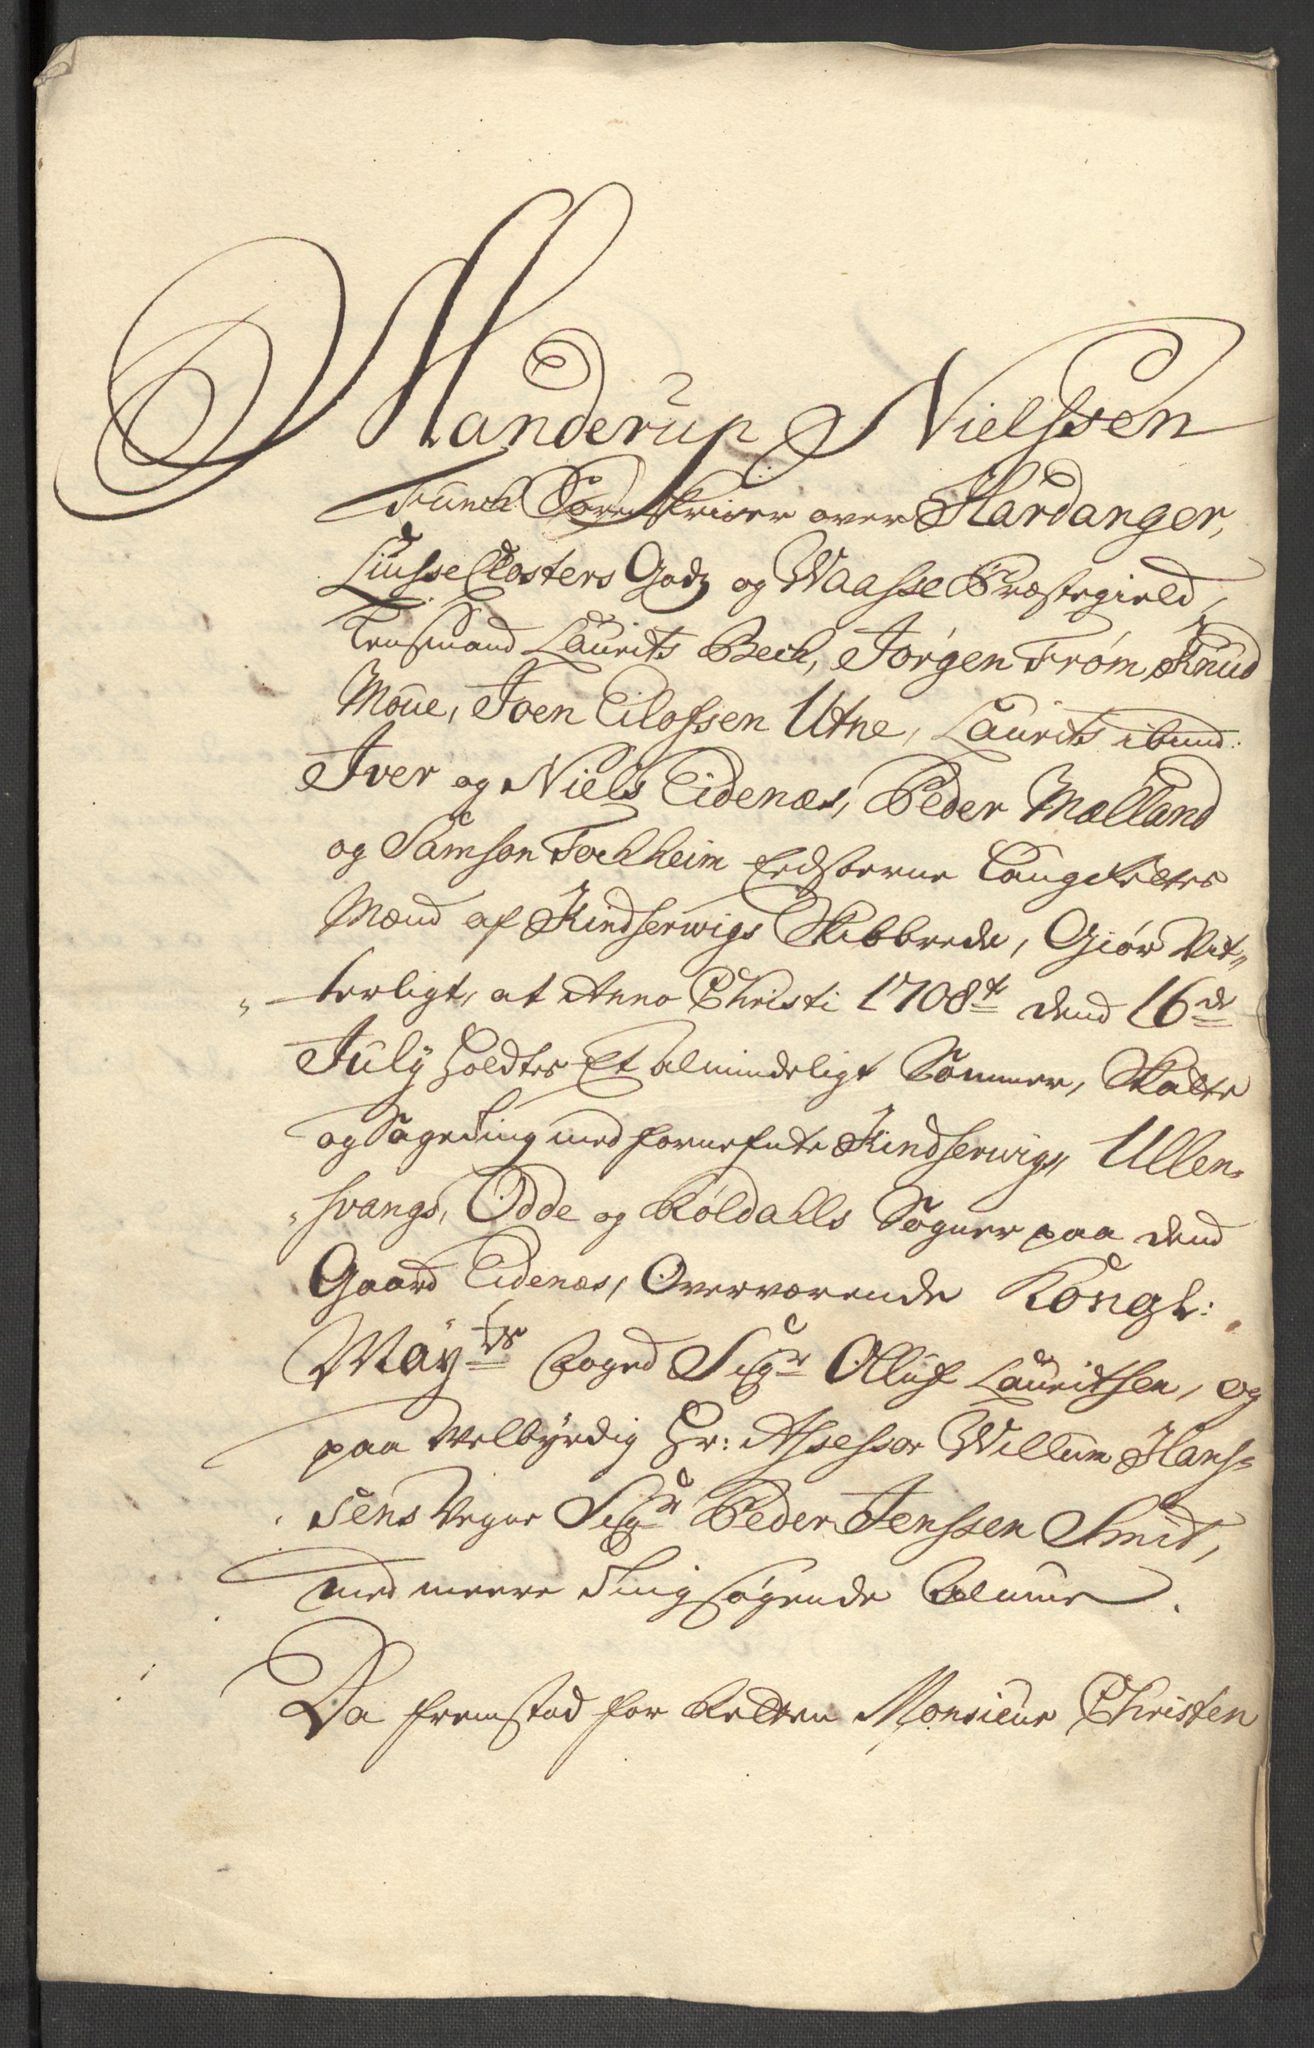 Manderup Nielssen
Funch Sorenskriver over Hardanger,
Liusse Closters Godz og Waasse Præstegield,
Lensmand Laurits Bech, Jørgen Frøm, Knud
Moue, Iven Eilofssen Utne, Laurits ibmd:
Iver og Niels Eidenæs, Peder Mælland
og Samson Tochheim Eedsvorne Laugrettes
Mænd af Kindserwigs Skibbrede, Giør Vit„
„terligt, at Anno Christi 1708te dend 16de
July holdtes Et almindeligt Sommer, Skatte
og Sageting med forneFnte Kindserwigs, Ullen„
„svangs, Odde og Røldahls Sogner paa dend
Gaard Eidenæs, Overværende Kongl:
Mayts Foged Sigr Olluf Lauritsen, og
paa Welbyrdig Hr: Assessor Willum Hans„
sens Vegne Sigr Peder Jenssen Smit,
med meere Ting søgende Almue.
Da fremstod for Retten Monsieur Christen